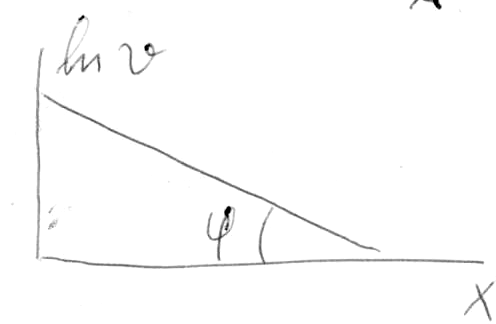 ln v
φ
x